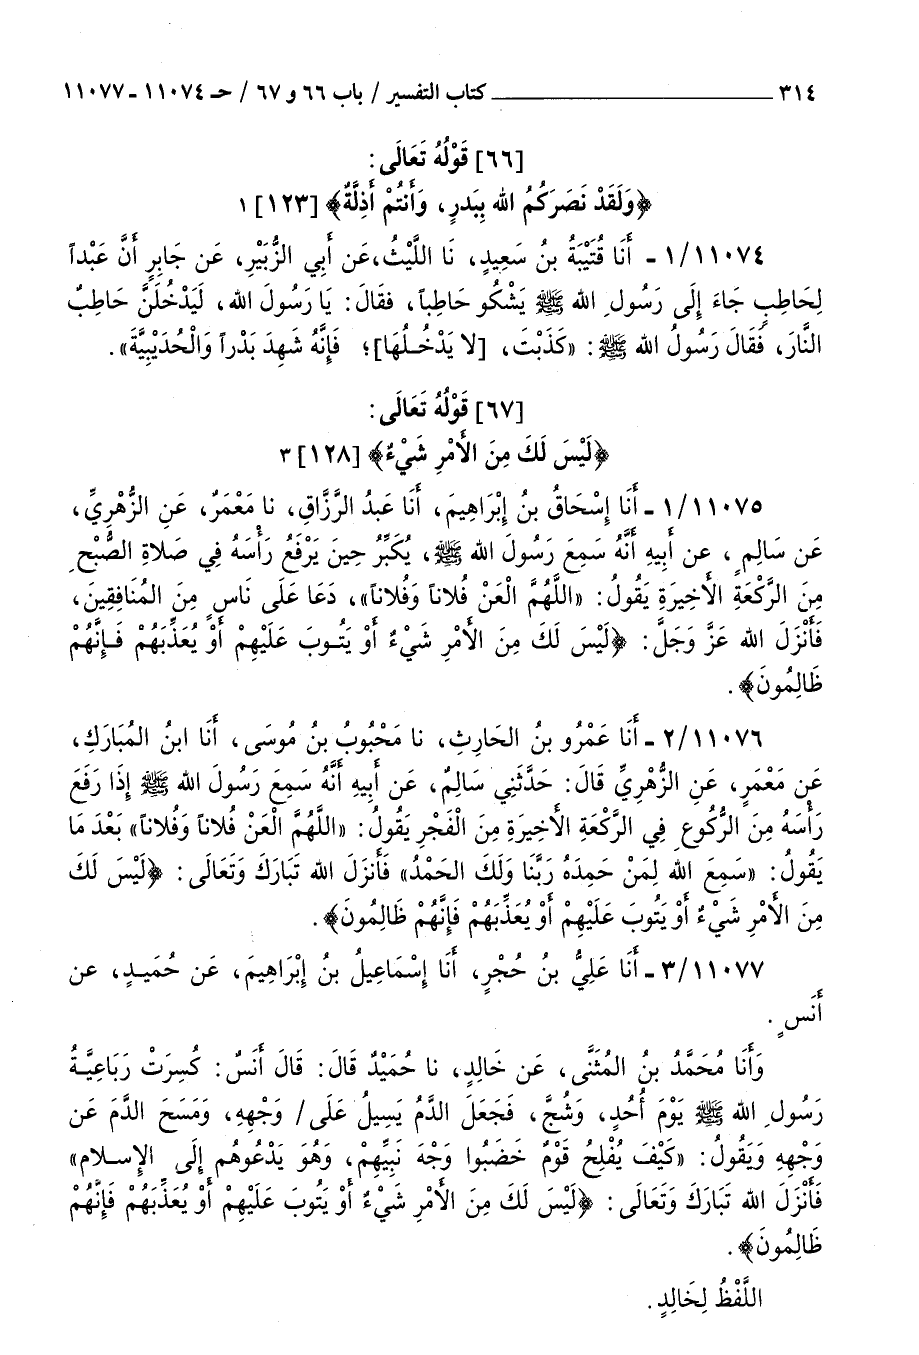 ٣١٤ ــــــــــــــــــــــــــــ كتاب التفسير / باب ٦٦ و ٦٧ / حـ ١١٠٧٤ - ١١٠٧٧
[٦٦] قَوْلُهُ تَعَالَى:
﴿وَلَقَدْ نَصَرَكُمُ الله بِبَدرٍ، وَأَنتُمْ أَذِلَّةٌ﴾ [١٢٣] ١
١/١١٠٧٤ - أَنَا قُتَيْبَةُ بنُ سَعِيدٍ، نَا اللَّيْثُ،عَن أَبِي الزُّبَيْرِ، عَن جَابِرٍ أَنَّ عَبْداً
لِحَاطِبٍ جَاءَ إِلَى رَسُولِ الله ﷺ يَشْكُو حَاطِباً، فقَالَ: يَا رَسُولَ الله، لَيَدْخُلَنَّ حَاطِبٌ
النَّارَ، فَقَالَ رَسُولُ الله ﷺ: «كَذَبْتَ، [لا يَدْخُـلُهَا]؛ فَإِنَّهُ شَهِدَ بَدْراً وَالْحُدَيْبِيَّةَ».
[٦٧] قَوْلُهُ تَعَالَى:
﴿لَيْسَ لَكَ مِنَ الأَمْرِ شَيْءٌ﴾ [١٢٨] ٣
١/١١٠٧٥ - أَنَا إِسْحَاقُ بنُ إِبْرَاهِيمَ، أَنَا عَبدُ الرَّزَّاقِ، نا مَعْمَرٌ، عَنِ الزُّهْرِيِّ،
عَن سَالِمٍ، عن أَبِيهِ أَنَّهُ سَمِعَ رَسُولَ الله ﷺ، يُكَبِّرُ حِينَ يَرْفَعُ رَأْسَهُ فِي صَلاةِ الصُّبْحِ
مِنَ الرَّكْعَةِ الأَخِيرَةِ يَقُولُ: «اللَّهُمَّ الْعَنْ فُلاناً وَفُلاناً»، دَعَا عَلَى نَاسٍ مِنَ المُنَافِقِينَ،
فَأَنْزَلَ الله عَزَّ وَجَلَّ: ﴿لَيْسَ لَكَ مِنَ الأَمْرِ شَيْءٌ أَوْ يَتُـوبَ عَلَيْهِمْ أَوْ يُعَذِّبَهُمْ فَـإِنَّهُمْ
ظَالِمُونَ﴾.
٢/١١٠٧٦ - أَنَا عَمْرُو بنُ الحَارِثِ، نا مَحْبُوبُ بنُ مُوسَى، أَنَا ابنُ المُبَارَكِ،
عَن مَعْمَرٍ، عَنِ الزُّهْرِيِّ قَالَ: حَدَّثَنِي سَالِمٌ، عَن أَبِيهِ أَنَّهُ سَمِعَ رَسُولَ الله ﷺ إِذَا رَفَعَ
رَأْسَهُ مِنَ الرُّكُوعِ فِي الرَّكعَةِ الأَخِيرَةِ مِنَ الْفَجْرِ يَقُولُ: «اللَّهُمَّ الْعَنْ فُلاناً وَفُلاناً» بَعْدَ مَا
يَقُولُ: «سَمِعَ الله لِمَنْ حَمِدَهُ رَبَّنَا وَلَكَ الحَمْدُ» فَأَنزَلَ الله تَبَارَكَ وَتَعَالَى: ﴿لَيْسَ لَكَ
مِنَ الأَمْرِ شَيْءٌ أَوْ يَتُوبَ عَلَيْهِمْ أَوْ يُعَذِّبَهُمْ فَإِنَّهُمْ ظَالِمُونَ﴾.
٣/١١٠٧٧ - أَنَا عَلِيُّ بنُ حُجْرٍ، أَنَا إِسْمَاعِيلُ بنُ إِبْرَاهِيمَ، عَن حُمَيـدٍ، عن
أَنَسٍ.
وَأَنَا مُحَمَّدُ بنُ المُثَنَّى، عَن خَالِدٍ، نا حُمَيْدٌ قَالَ: قَالَ أَنَسٌ: كُسِرَتْ رَبَاعِيَّةُ
رَسُولِ الله ﷺ يَوْمَ أُحُدٍ، وَشُجَّ، فَجَعَلَ الدَّمُ يَسِيلُ عَلَى/ وَجْهِهِ، وَمَسَحَ الدَّمَ عَن
وَجْهِهِ وَيَقُولُ: «كَيْفَ يُفْلِحُ قَوْمٌ خَضَبُوا وَجْهَ نَبِيِّهِمْ، وَهُوَ يَدْعُوهُم إِلَى الإِسـلامِ»
فَأَنْزَلَ الله تَبَارَكَ وَتَعَالَى: ﴿لَيْسَ لَكَ مِنَ الأَمْرِ شَيْءٌ أَوْ يَتُوبَ عَلَيْهِمْ أَوْ يُعَذِّبَهُمْ فَإِنَّهُمْ
ظَالِمُونَ﴾.
اللَّفْظُ لِخَالِدٍ.